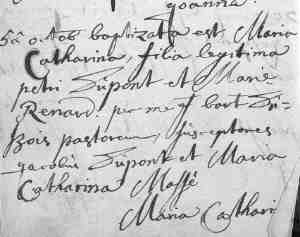 joanna
5a octob baptizata est Maria
Catharina, filia legitima
petri Dupont et Mariæ
Renard. per me
Bois pastorem, susceptores
jacobus Dupont et Maria
Catharina Massé
Maria Cathari